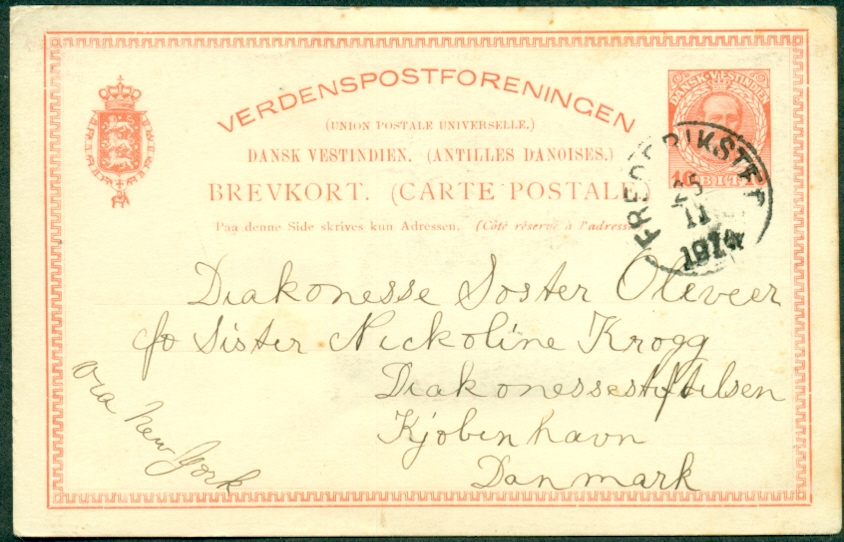 VERDENSPOSTFORENINGEN
(UNION POSTALE UNIVERSELLE.)
DANSK VESTINDIEN. (ANTILLES DANOISES.)
BREVKORT. (CARTE POSTALE)
Paa denne Side skrives kun Adressen. (Côté réservé à l'adresse
DANSK-VESTINDIEN
10 BIT 10
FREDERIKSTED
25
11
1914
Diakonesse Soster Oliveer
c/o Sister Nickoline Krogg
Diakonessestiftelsen
Kjobenhavn
Danmark
via New York